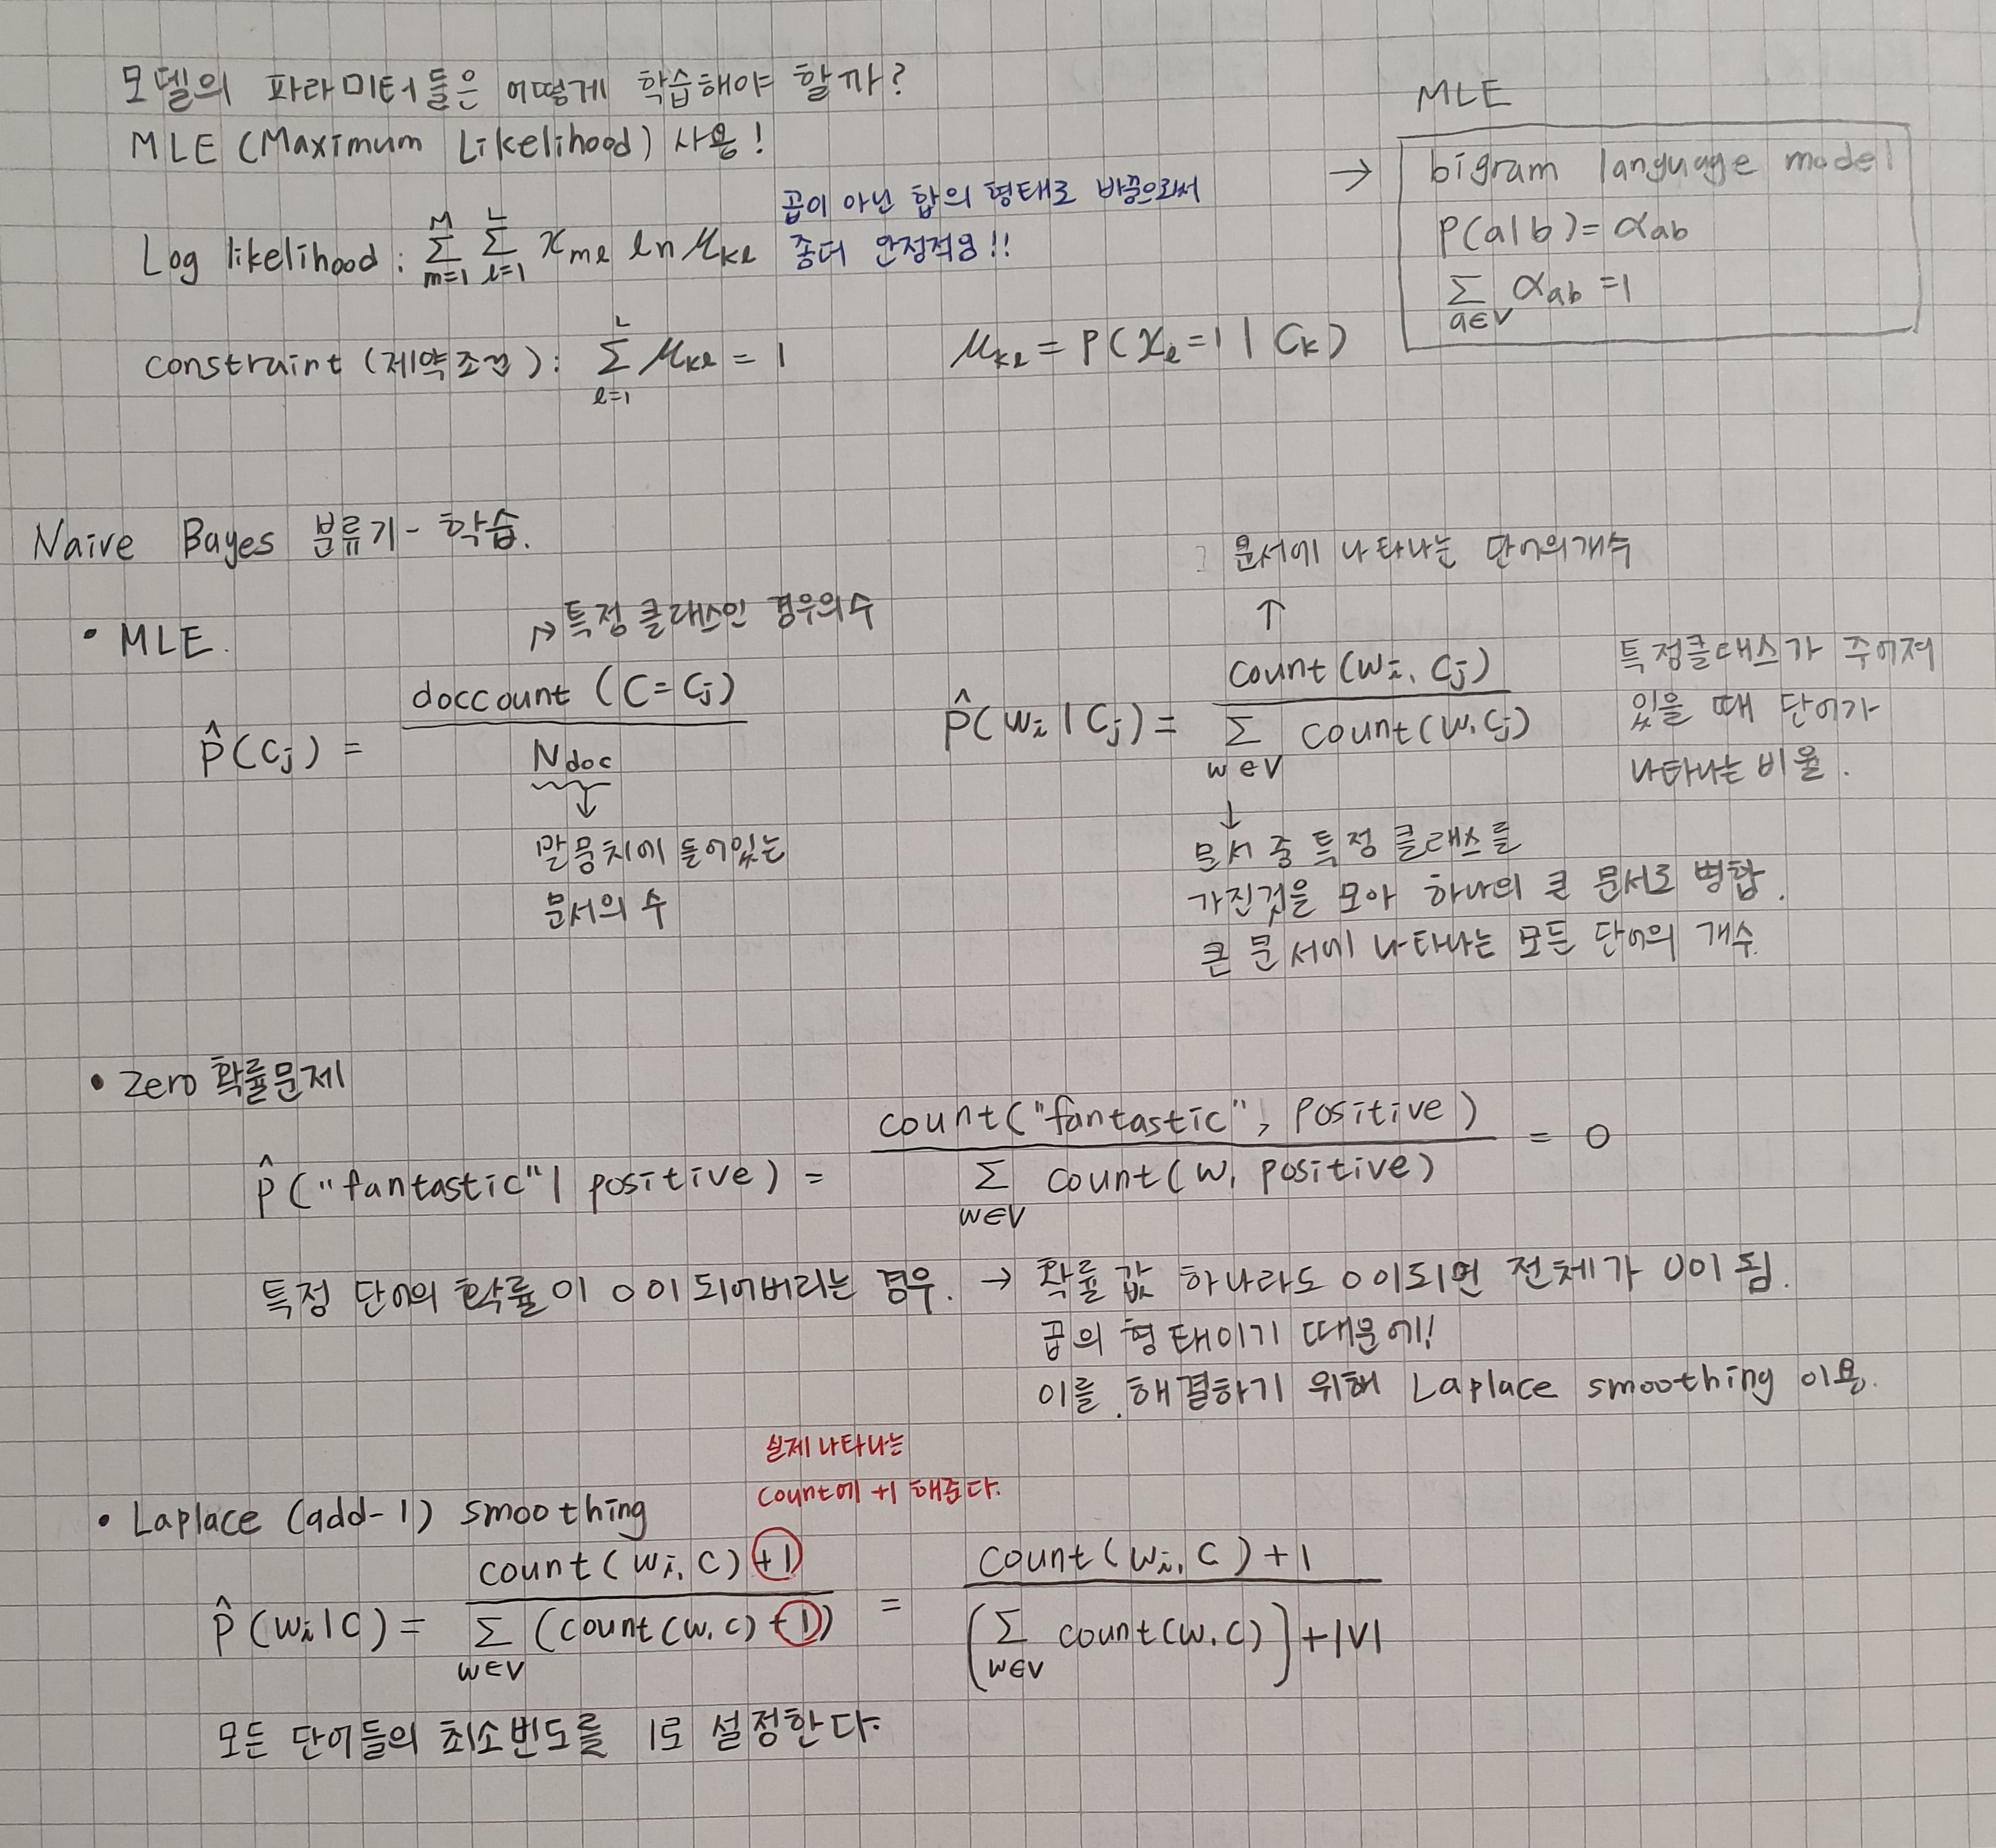 모델의 파라미터들은 어떻게 학습해야 할까?
MLE (Maximum Likelihood) 사용!
곱이 아닌 합의 형태로 바꿈으로써
좀더 안정적임!!
Log likelihood : Σ_{m=1}^{M} Σ_{l=1}^{L} x_{ml} ln μ_{kl}
constraint (제약조건) : Σ_{l=1}^{L} μ_{kl} = 1
μ_{kl} = P(x_l = 1 | C_k)
MLE
→ bigram language model
P(a|b) = α_{ab}
Σ_{a∈V} α_{ab} = 1
Naive Bayes 분류기 - 학습.
• MLE.
→ 특정 클래스인 경우의 수
P̂(C_j) = doccount (C = C_j) / N_{doc}
↓
말뭉치에 들어있는
문서의 수
문서에 나타나는 단어의 개수
↑
P̂(w_i | C_j) = count(w_i, C_j) / Σ_{w∈V} count(w, C_j)
특정클래스가 주어져
있을 때 단어가
나타나는 비율.
↓
문서 중 특정 클래스를
가진것을 모아 하나의 큰 문서로 병합.
큰 문서에 나타나는 모든 단어의 개수.
• Zero 확률문제
P̂("fantastic" | positive) = count("fantastic", positive) / Σ_{w∈V} count(w, positive) = 0
특정 단어의 확률이 0이 되어버리는 경우. → 확률 값 하나라도 0이되면 전체가 0이 됨.
곱의 형태이기 때문에!
이를 해결하기 위해 Laplace smoothing 이용.
실제 나타나는
count에 +1 해준다.
• Laplace (add-1) smoothing
P̂(w_i | C) = count(w_i, C) +1 / Σ_{w∈V} (count(w, C) +1) = count(w_i, C) +1 / (Σ_{w∈V} count(w, C)) + |V|
모든 단어들의 최소빈도를 1로 설정한다.